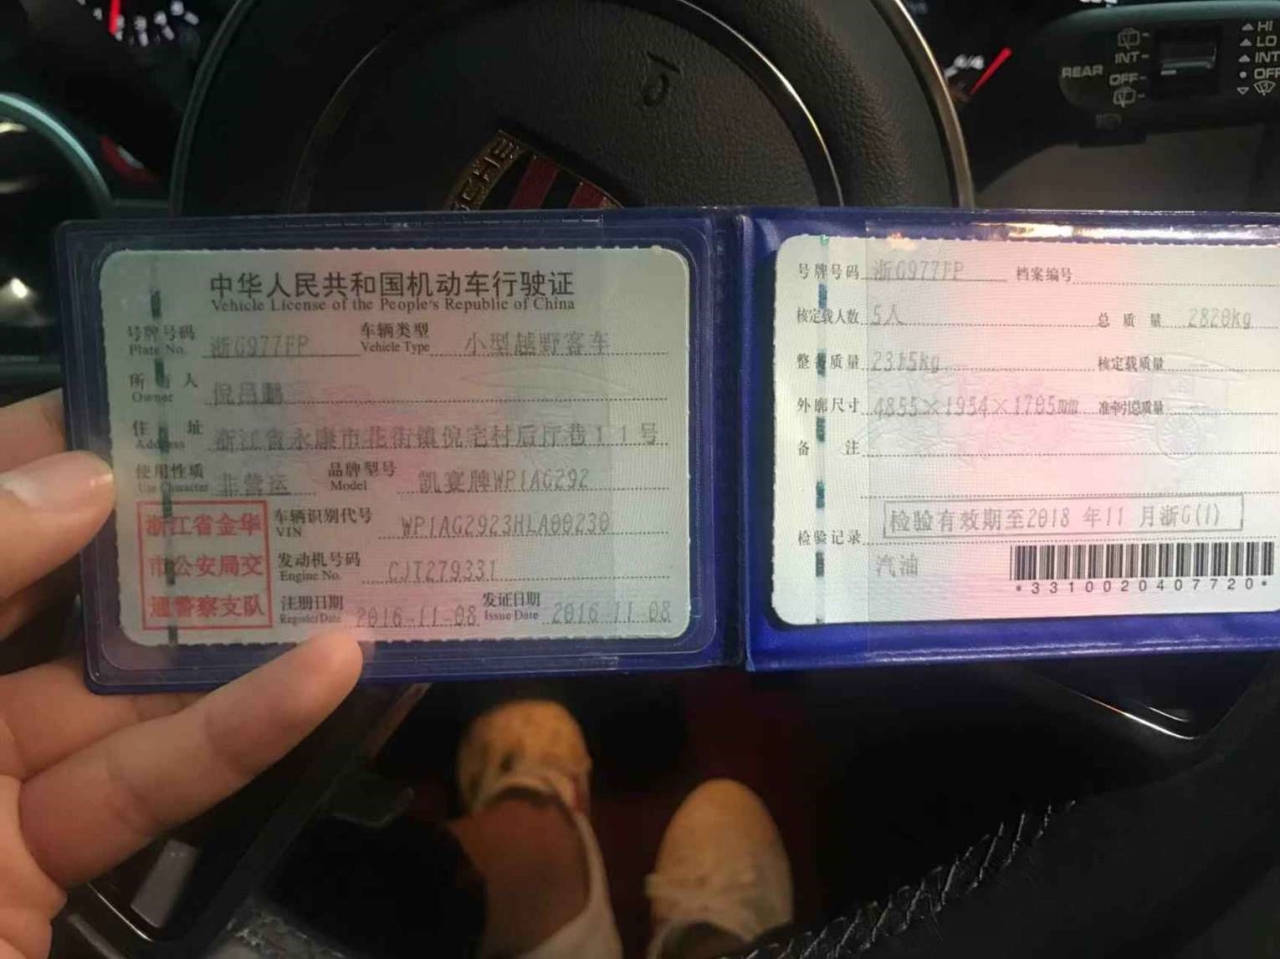 HI
LO
INT
INT
REAR
OFF
OFF
中华人民共和国机动车行驶证
Vehicle License of the People's Republic of China
号牌号码 浙G977FP 车辆类型 小型越野客车
Plate No. Vehicle Type
所有人 倪昌鹏
Owner
住址 浙江省永康市花街镇倪宅村后厅巷11号
Address
使用性质 非营运 品牌型号 凯宴牌WP1AG292
Use Character Model
浙江省金华
市公安局交
通警察支队
车辆识别代号 WP1AG2923HLA00230
VIN
发动机号码
Engine No.
注册日期 2016-11-08 发证日期 2016-11-08
Register Date Issue Date
号牌号码 浙G977FP 档案编号
核定载人数 5人 总质量 2820kg
整备质量 2315kg 核定载质量
外廓尺寸 4855×1954×1705mm 准牵引总质量
备注
检验有效期至2018年11月浙G(1)
检验记录
汽油
*3310020407720*